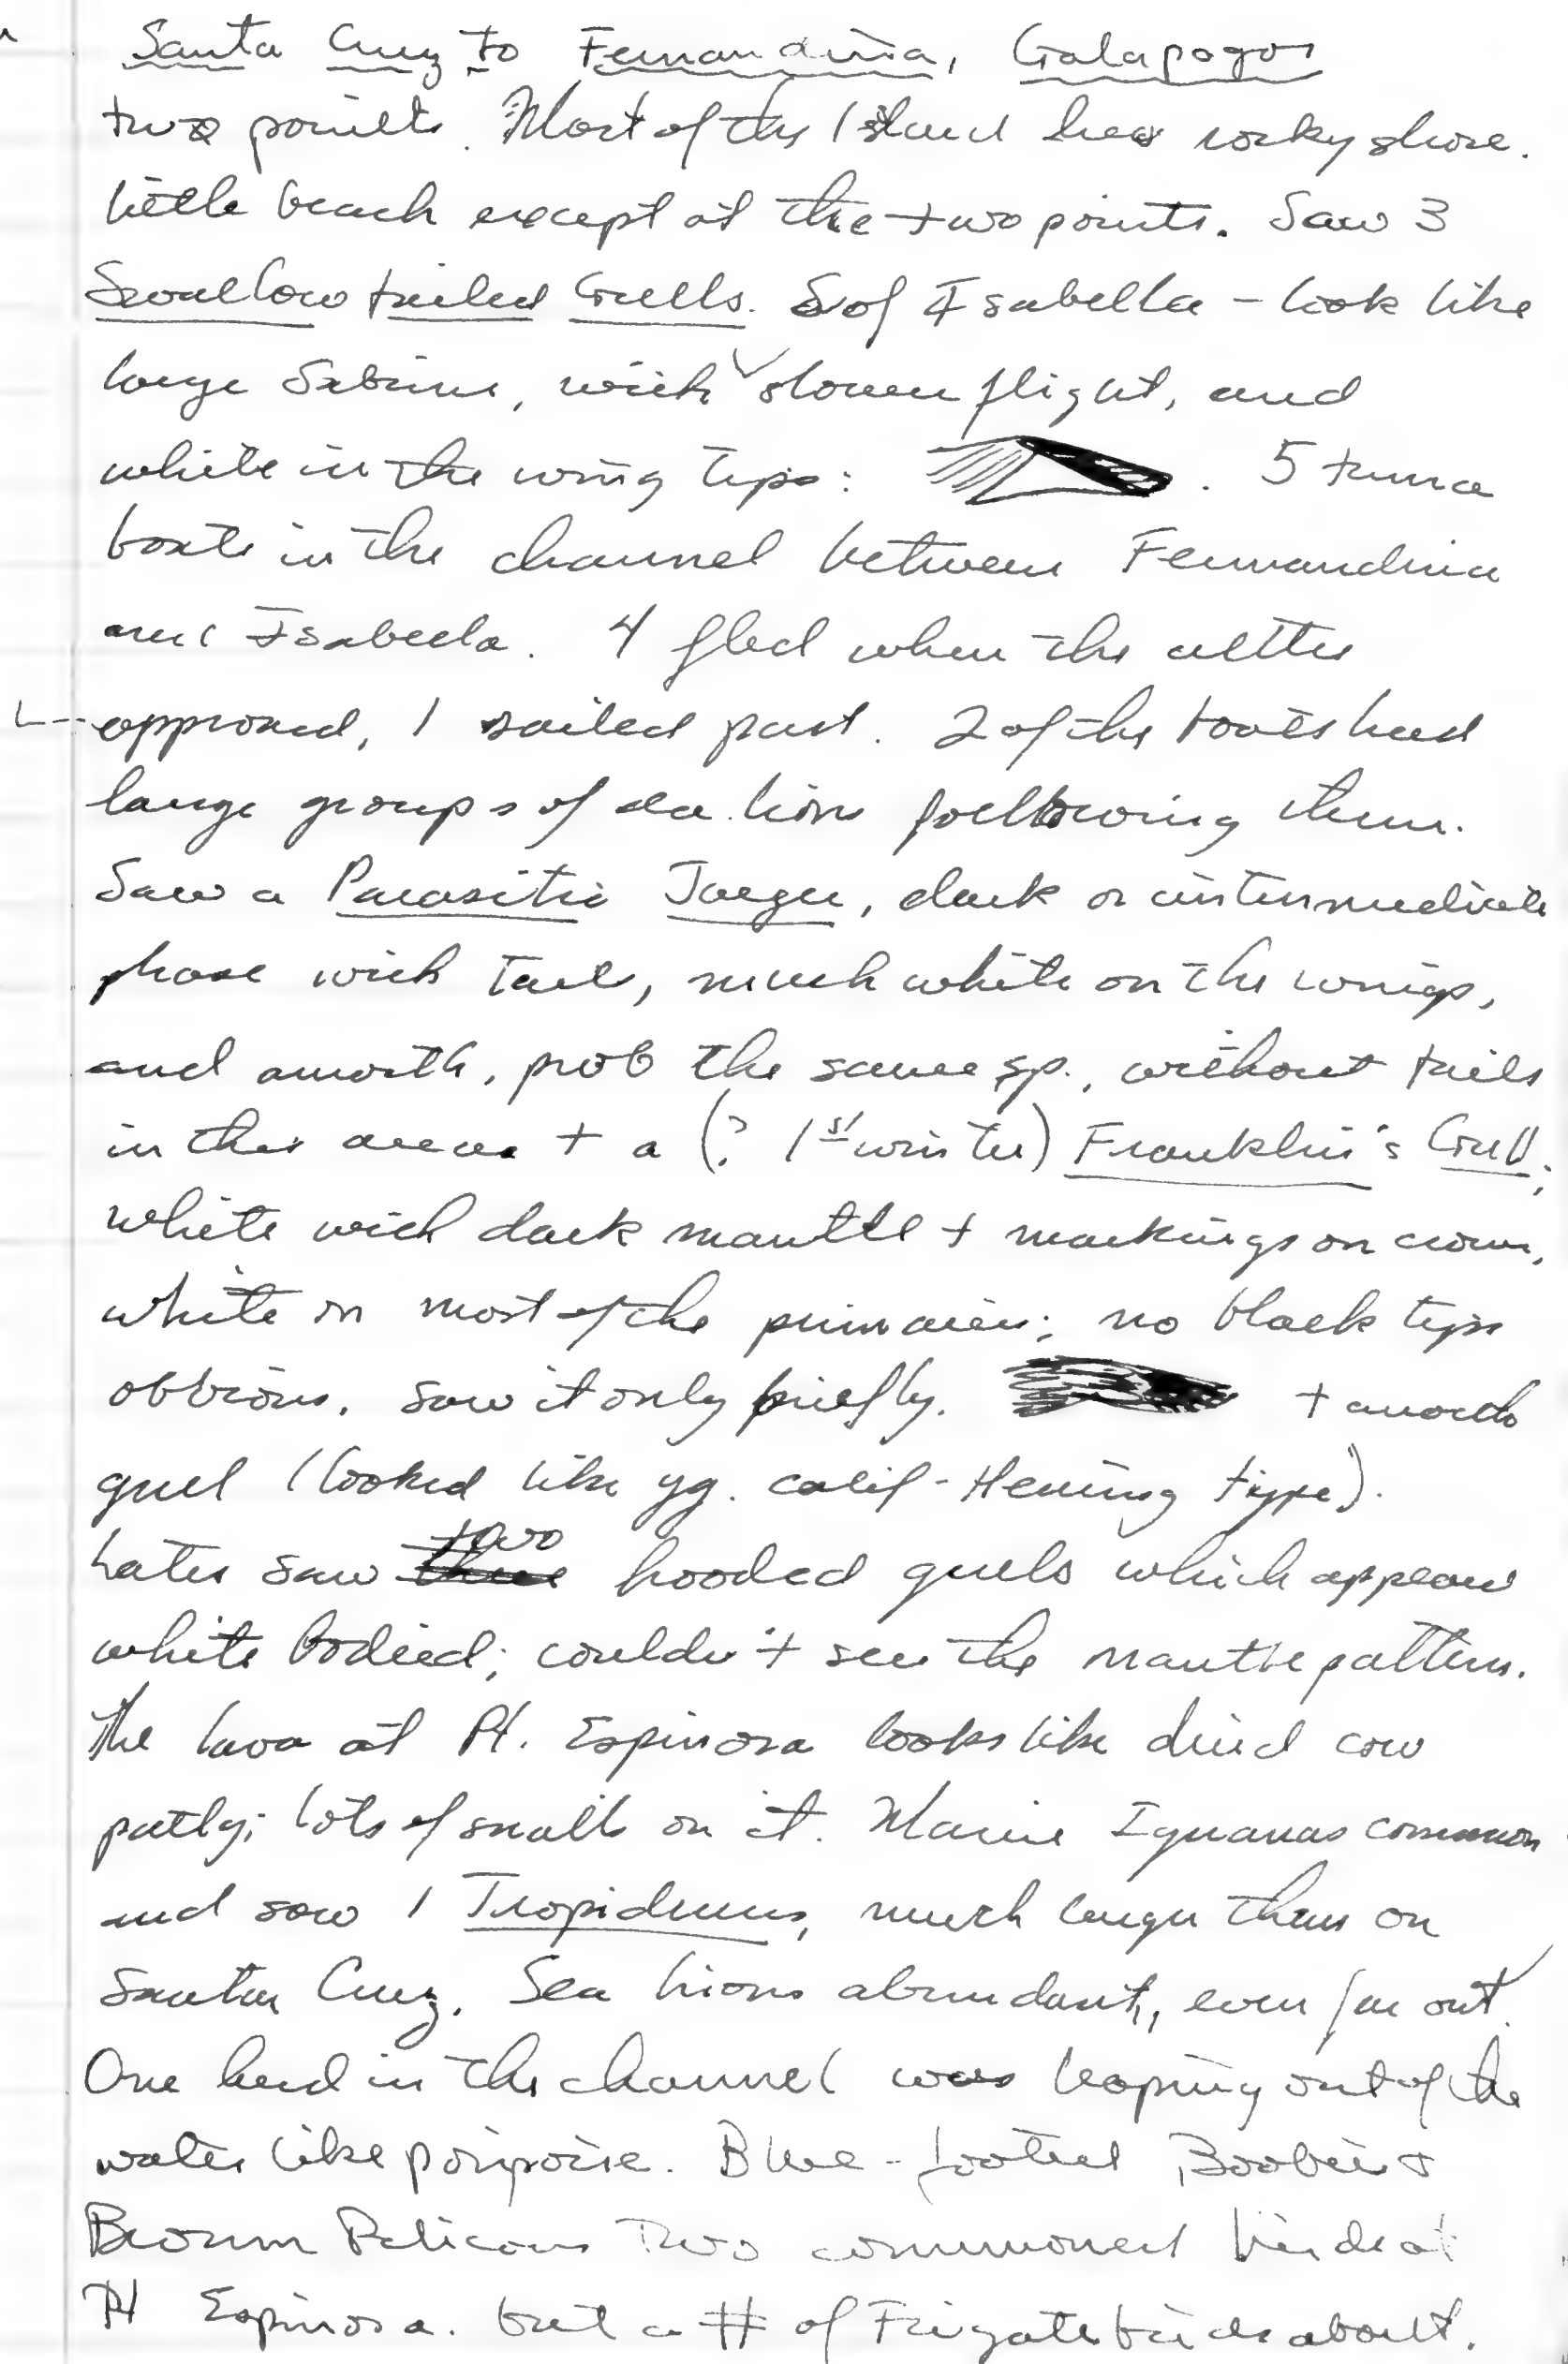 Santa Cruz to Fernandina, Galapagos
two points. Most of the Island has rocky shore.
little beach except at the two points. Saw 3
Swallow tailed Gulls. S of Isabella - look like
large Sabines, with slower flight, and
white in the wing tips: . 5 tuna
boats in the channel between Fernandina
and Isabela. 4 fled when the
approached, 1 sailed past. 2 of the boats had
large groups of sea lions following them.
Saw a Parasitic Jaeger, dark or intermediate
phase with tail, much white on the wings,
and another, prob the same sp., without tails
in this area + a (? 1st winter) Franklin's Gull;
white with dark mantle + markings on crown,
white in most of the primaries; no black tips
obvious. saw it only briefly. + another
gull (looked like yg. Calif-Herring type).
Later saw two hooded gulls which appeared
white bodied; couldn't see the mantle pattern.
The lava at Pt. Espinosa looks like dried cow
patty; lots of snails on it. Marine Iguanas common
and saw 1 Tropidurus, much larger than on
Santa Cruz. Sea lions abundant, even far out.
One herd in the channel was leaping out of the
water like porpoise. Blue-footed Boobies +
Brown Pelicans two commonest birds at
Pt Espinosa. but a # of Frigatebirds about.